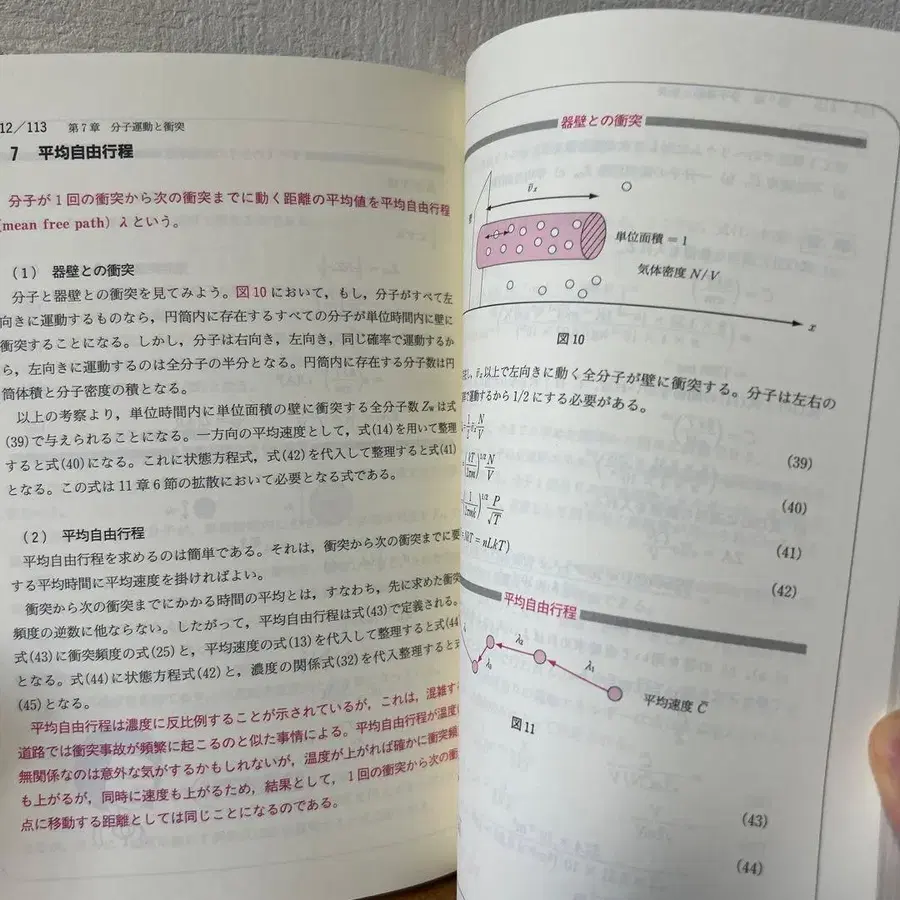 12/113 第7章 分子運動と衝突
7 平均自由行程
分子が1回の衝突から次の衝突までに動く距離の平均値を平均自由行程
(mean free path) λという。
(1) 器壁との衝突
分子と器壁との衝突を見てみよう。図10において,もし,分子がすべて左
向きに運動するものなら,円筒内に存在するすべての分子が単位時間内に壁に
衝突することになる。しかし,分子は右向き,左向き,同じ確率で運動するか
ら,左向きに運動するのは全分子の半分となる。円筒内に存在する分子数は円
筒体積と分子密度の積となる。
以上の考察より,単位時間内に単位面積の壁に衝突する全分子数Zwは式
(39)で与えられることになる。一方向の平均速度として,式(14)を用いて整理
すると式(40)になる。これに状態方程式,式(42)を代入して整理すると式(41)
となる。この式は11章6節の拡散において必要となる式である。
(2) 平均自由行程
平均自由行程を求めるのは簡単である。それは,衝突から次の衝突までに要
する平均時間に平均速度を掛ければよい。
衝突から次の衝突までにかかる時間の平均とは,すなわち,先に求めた衝突
頻度の逆数に他ならない。したがって,平均自由行程は式(43)で定義される。
式(43)に衝突頻度の式(25)と,平均速度の式(13)を代入して整理すると式(44)
となる。式(44)に状態方程式(42)と,濃度の関係式(32)を代入整理すると式
(45)となる。
平均自由行程は濃度に反比例することが示されているが,これは,混雑する
道路では衝突事故が頻繁に起こるのと似た事情による。平均自由行程が温度に
無関係なのは意外な気がするかもしれないが,温度が上がれば確かに衝突頻
も上がるが,同時に速度も上がるため,結果として,1回の衝突から次の衝
点に移動する距離としては同じことになるのである。
器壁との衝突
v̄x
単位面積 = 1
気体密度 N/V
x
図10
し, v̄x以上で左向きに動く全分子が壁に衝突する。分子は左右の
で運動するから1/2にする必要がある。
=1/2 v̄x N/V (39)
(kT/2πm)^1/2 N/V (40)
(1/2πmk)^1/2 P/√T (41)
NkT = nLkT) (42)
平均自由行程
λ3 λ2 λ1
平均速度 C̄
図11
(43)
(44)